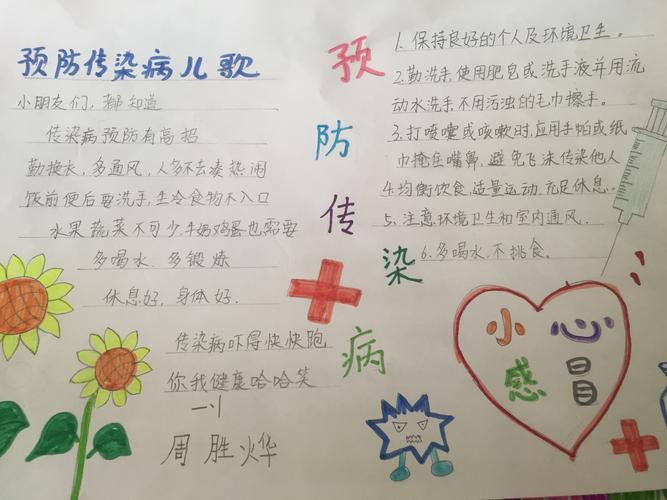 预防传染病儿歌
小朋友们，都知道
传染病预防有高招
勤换衣，多通风，人多不去凑热闹
饭前便后要洗手，生冷食物不入口
水果蔬菜不可少，牛奶鸡蛋也需要
多喝水，多锻炼
休息好，身体好.
传染病吓得快快跑
你我健康哈哈笑
一1
周胜烨
预
防
传
染
病
1.保持良好的个人及环境卫生。
2.勤洗手，使用肥皂或洗手液并用流
动水洗手，不用污浊的毛巾擦手。
3.打喷嚏或咳嗽时，应用手帕或纸
巾掩住嘴鼻，避免飞沫传染他人
4.均衡饮食，适量运动，充足休息。
5.注意环境卫生和室内通风.
6.多喝水，不挑食。
小心
感冒